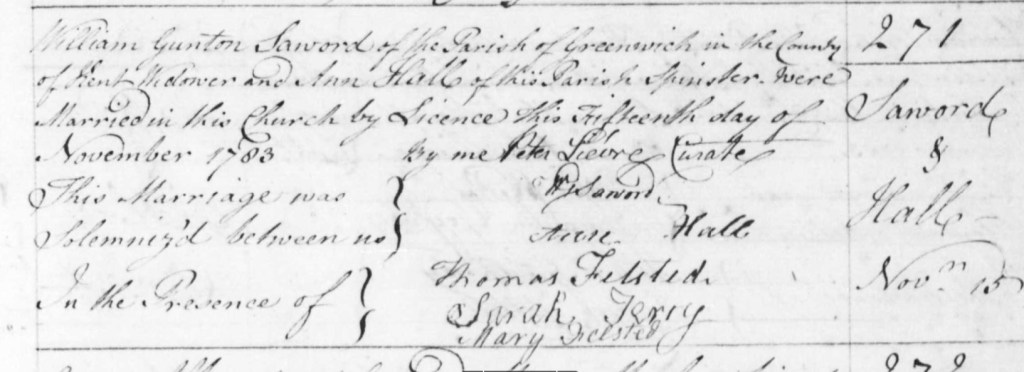 William Gunton Saword of the Parish of Greenwich in the County
of Kent Widower and Ann Hall of this Parish Spinster were
Married in this Church by Licence this Fifteenth day of
November 1783 By me Peter Lievre Curate
This Marriage was
Solemniz'd between us
Wm Saword
Anne Hall
In the Presence of
Thomas Felsted
Sarah Terry
Mary Felsted
271
Saword
&
Hall
Novm 15
272